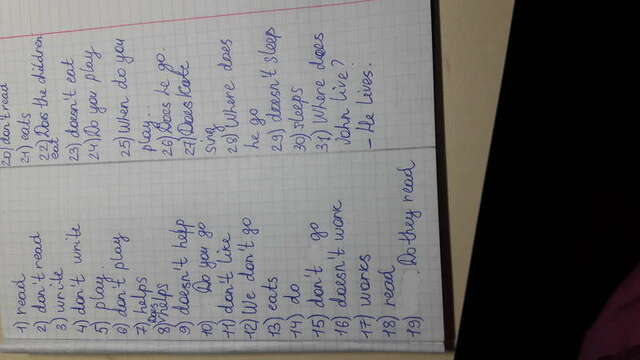 1) read
2) don't read
3) write
4) don't write
5) play.
6) don't play
7) helps
Does
8) helps
9) doesn't help
10) Do you go
11) don't like
12) We don't go
13) eats
14) do
15) don't go
16) doesn't work
17) works
18) read
19) Do they read
20) don't read
21) eats
22) Does the children
eat
23) doesn't eat
24) Do you play
25) When do you
play..
26) Does he go.
27) Does Kate
sing
28) Where does
he go
29) doesn't sleep
30) sleeps
31) Where does
John live?
– He lives.